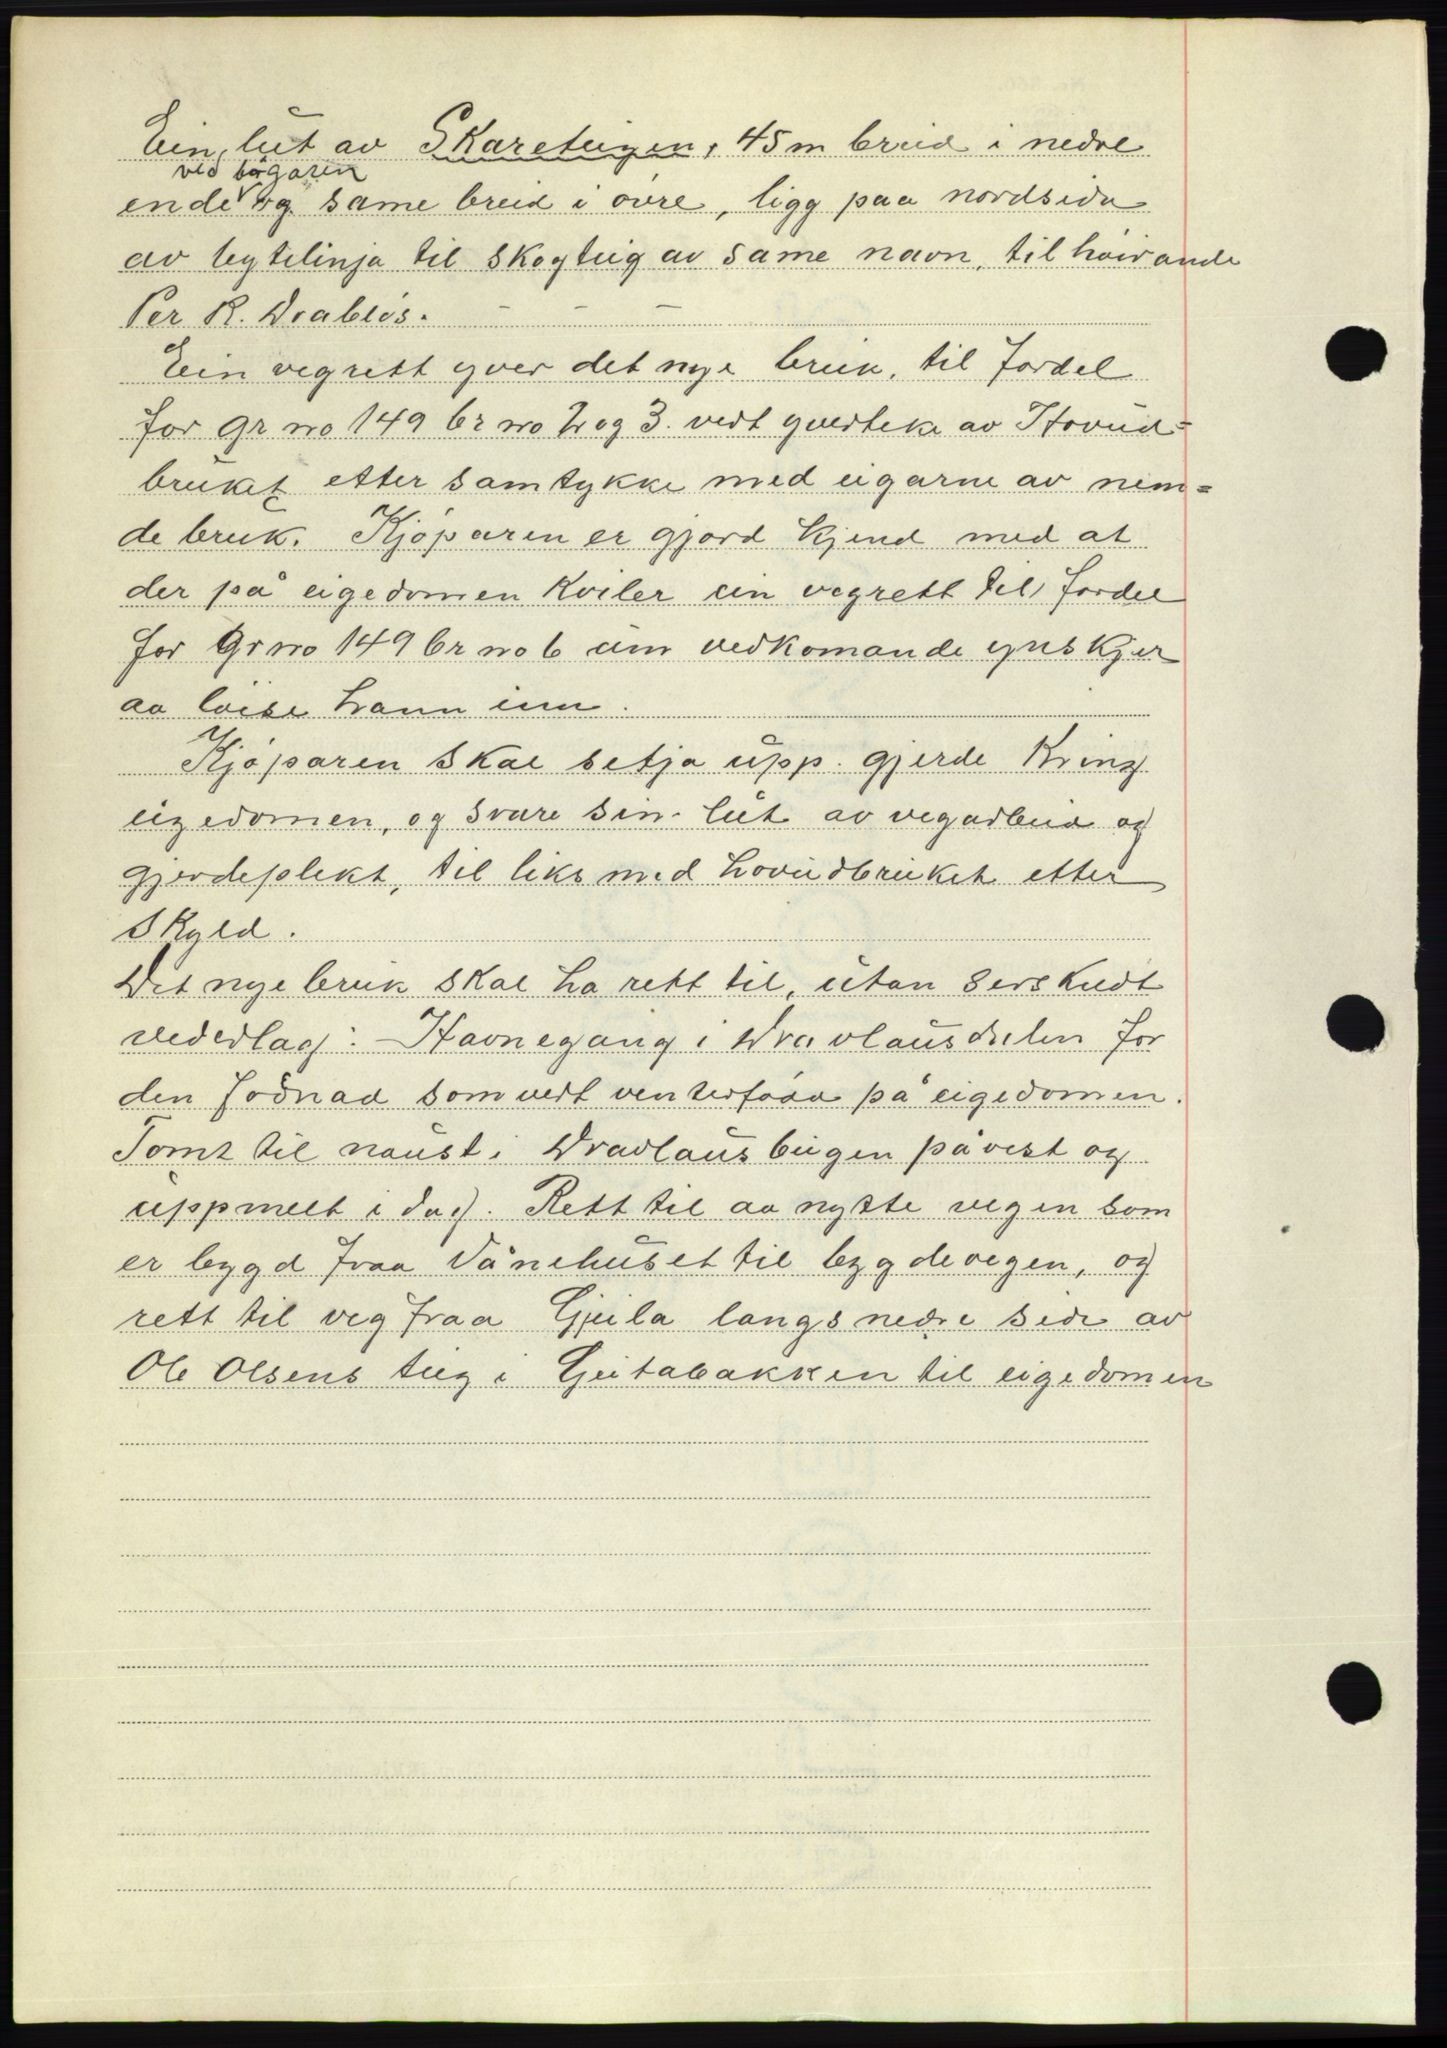 Ein lut av Skareteigen, 45 m breid i nedre
ved bøgaren
ende og same breid i övre, ligg paa nordsida
av bytelinja til skogteig av same navn, tilhöirande
Per K. Drabløs. - - -
Ein vegrett yver det nye bruk, til fordel
for gr no 149 br no 2 og 3. vert yverteke av Hovud=
bruket etter samtykke med eigarne av nem=
de bruk. Kjöparen er gjord kjend med at
der på eigedomen kviler ein vegrett til fordel
for Gr no 149 br no 6 um vedkomande ynskjer
aa löise hann inn.
Kjöparen skal setja upp gjerde kring
eigedomen, og svare sin lut av vegarbeid og
gjerdeplikt, til liks med hovudbruket etter
skyld.
Det nye bruk skal ha rett til, utan serskudt
vederlag: Havnegang i Dravlausdalen for
den födnad som vert venterfödd på eigedomen.
Tomt til naust i Dravlausbugen påvist og
uppmelt i dag. Rett til aa nytte vegen som
er bygd fraa Vånehuset til bygdevegen, og
rett til veg fraa Gjeila langs nedre side av
Ole Olsens teig i Geitabakken til eigedomen